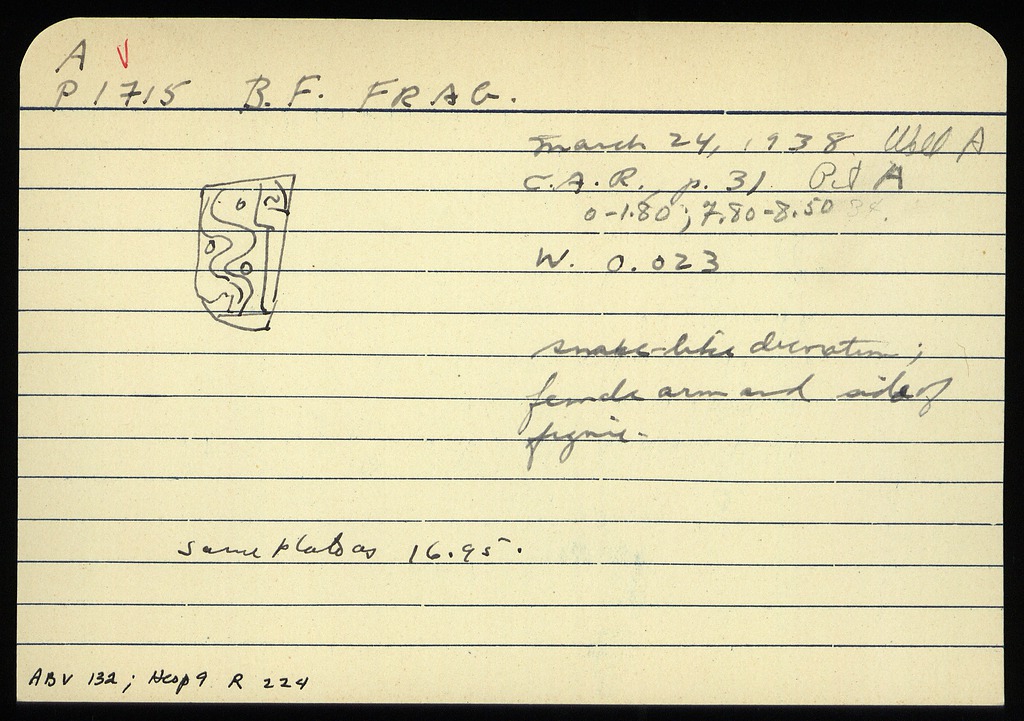 A V
P 1715 B.F. FRAG.
March 24, 1938 Well A
C.A.R. p. 31 Pit A
0-1.80; 7.80-8.50
W. 0.023
snake-like decoration;
female arm and side of
figure.
same plate as 16.95.
ABV 132; Hesp 9 R 224